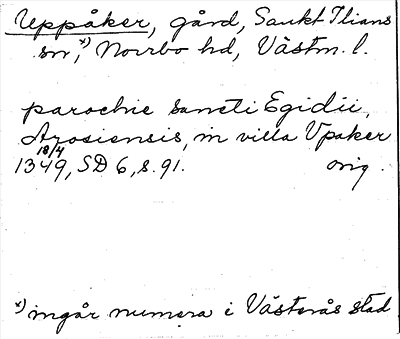 Uppåker, gård, Sankt Ilians
sn,x) Norrbo hd, Västm. l.
parochie sancti Egidii,
Arosiensis, in villa Vpaker
18/4
1349, SD 6, s. 91. orig.
x) ingår numera i Västerås stad